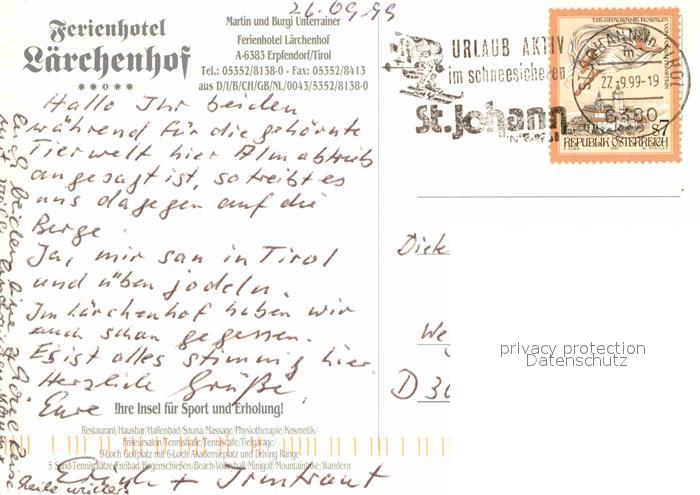 26.09.99
Ferienhotel
Lärchenhof
Martin und Burgi Unterrainer
Ferienhotel Lärchenhof
A-6383 Erpfendorf/Tirol
Tel.: 05352/8138-0 · Fax: 05352/8413
aus D/I/B/CH/GB/NL/0043/5352/8138-0
Hallo Ihr beiden
während für die gehörnte
Tierwelt hier Almabtrieb
angesagt ist, so treibt es
uns dagegen auf die
Berge.
Ja, mir san in Tirol
und üben jodeln.
Im Lärchenhof haben wir
auch schon gegessen.
Es ist alles stimmig hier.
Herzliche Grüße
Eure
Erich + Irmtraut
Ihre Insel für Sport und Erholung!
Restaurant/Hausbar/Hallenbad/Sauna/Massage/Physiotherapie/Kosmetik/
Friseursalon/Tennishalle/Tenniscafe/Tiefgarage/
9-Loch Golfplatz mit 6-Loch Akademieplatz und Driving Range
5 Sand-Tennisplätze/Freibad/Bogenschießen/Beach-Volleyball/Minigolf/Mountainbike/Wandern
Euch beiden eine schöne
URLAUB AKTIV
im schneesicheren
St. Johann
in Tirol
ST. JOHANN in TIROL
27.-9.99-19
6380
DIE GRAUSAME ROSALIA
S7
REPUBLIK ÖSTERREICH
1997
Diet
We
D 30
privacy protection
Datenschutz